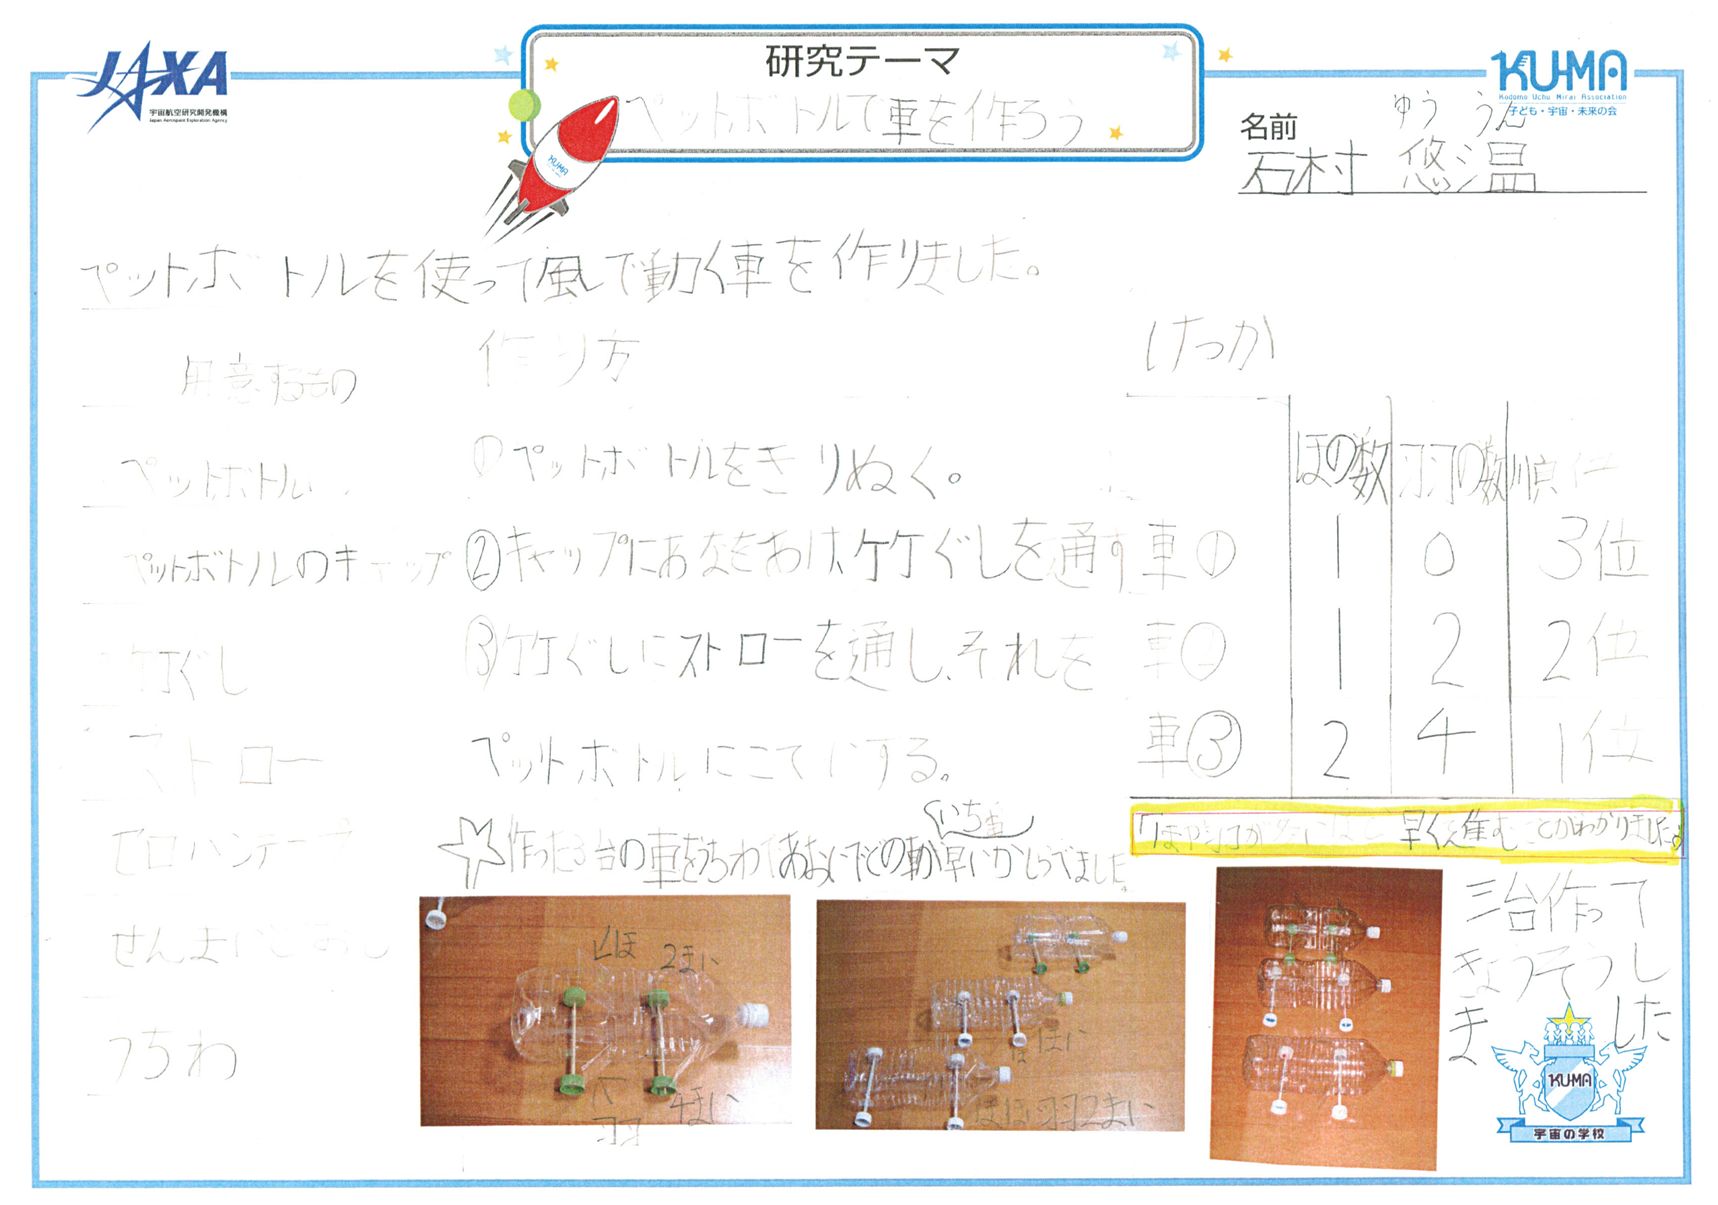 JAXA
宇宙航空研究開発機構
Japan Aerospace Exploration Agency
研究テーマ
ペットボトルで車を作ろう
KU-MA
Kodomo Uchu Mirai Association
子ども・宇宙・未来の会
ゆう うん
名前
石村 悠温
KUMA
ペットボトルを使って風で動く車を作りました。
用意するもの
ペットボトル
ペットボトルのキャップ
竹ぐし
ストロー
セロハンテープ
せんまいどおし
うちわ
作り方
① ペットボトルをきりぬく。
② キャップにあなをあけ、竹ぐしを通す
③ 竹ぐしにストローを通し、それを
ペットボトルにこていする。
いち番
作った3台の車をうちわであおいでどの車が早いかしらべました。
けっか
ほの数 羽の数 順位
車① 1 0 3位
車② 1 2 2位
車③ 2 4 1位
早く進むことがわかりました
三台作って
きょうそうし
ました
ほ 2まい
羽 4まい
ほ 羽2まい
KUMA
宇宙の学校